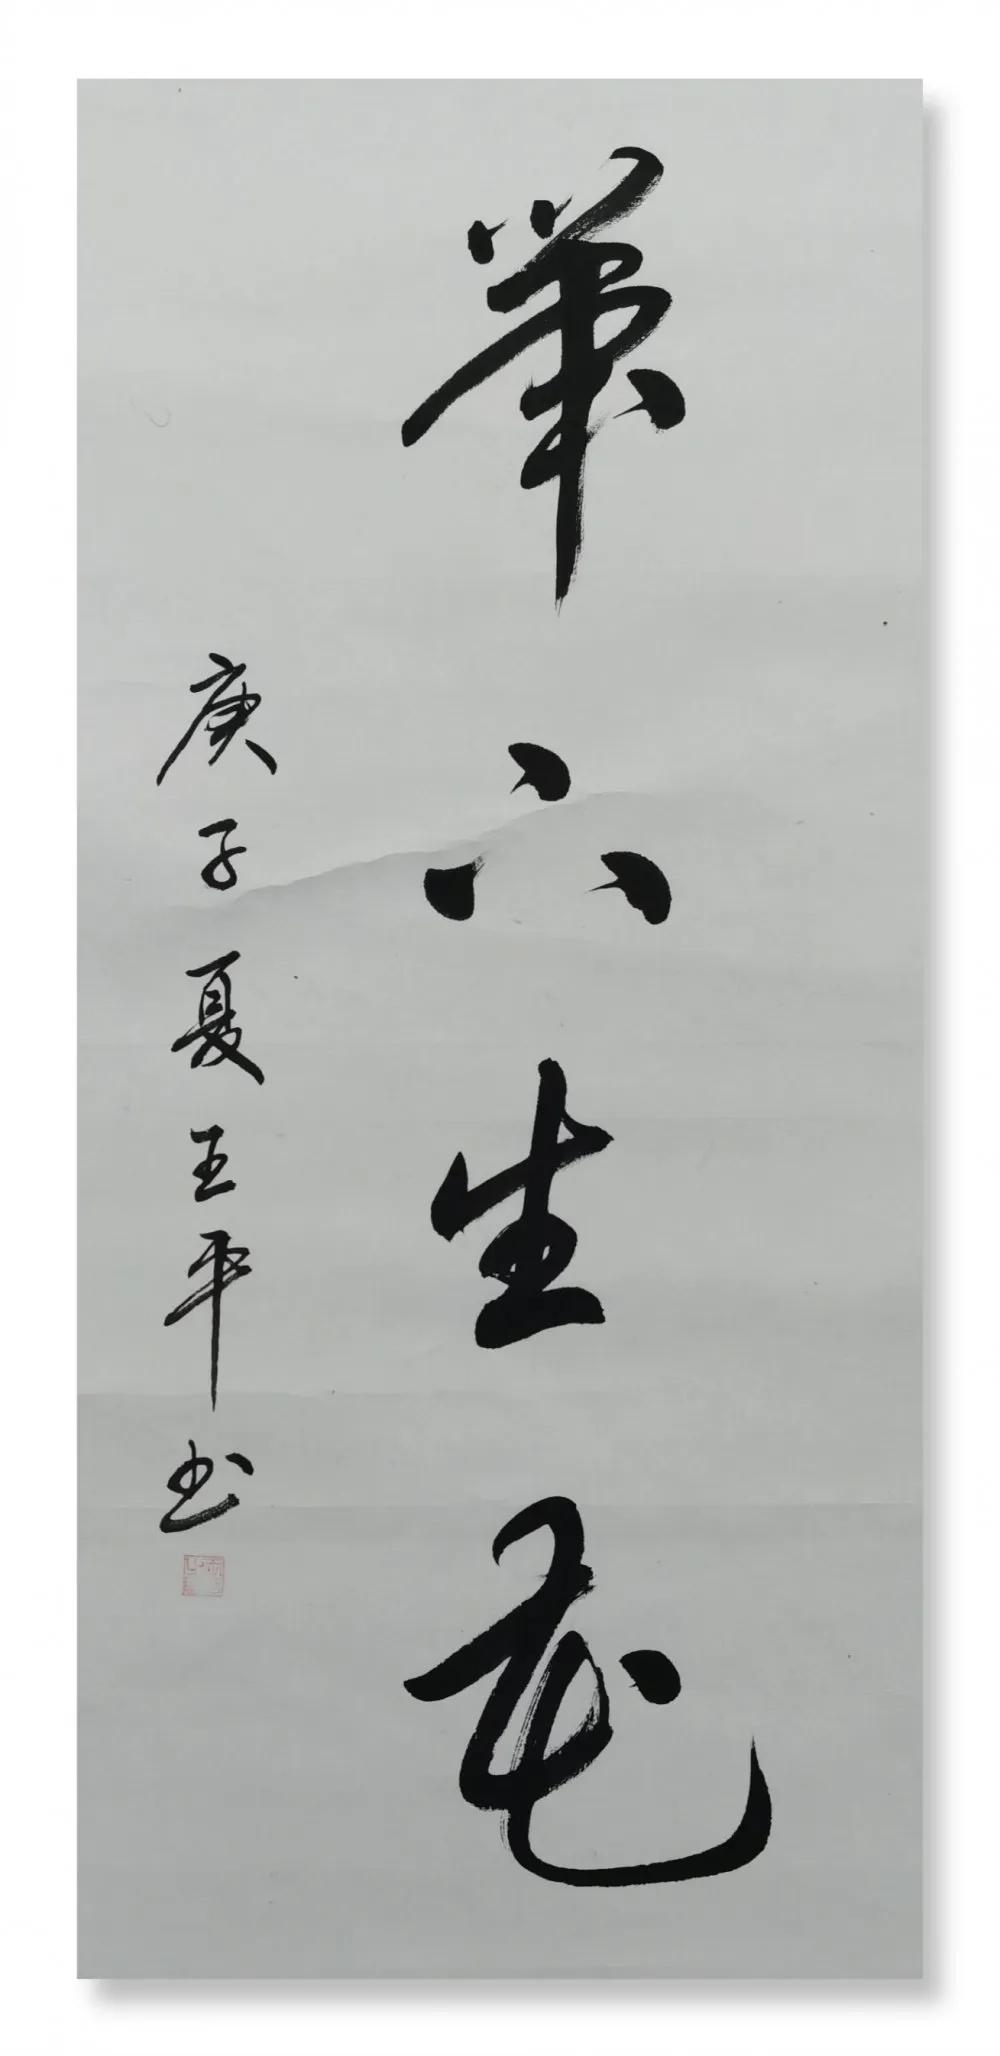 筆下生花
庚子夏王平书